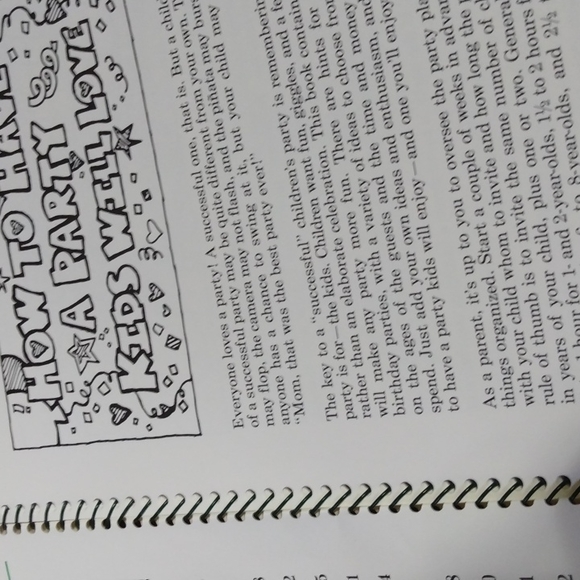 HOW TO HAVE
A PARTY
KIDS WILL LOVE
Everyone loves a party! A successful one, that is. But a child
of a successful party may be quite different from your own. T
may flop, the camera may not flash, and the piñata may burs
anyone has a chance to swing at it, but your child may
"Mom, that was the best party ever!"
The key to a "successful" children's party is remembering
party is for—the kids. Children want fun, giggles, and a fe
rather than an elaborate celebration. This book contain
will make any party more fun. There are hints for
birthday parties, with a variety of ideas to choose from
on the ages of the guests and the time and money
spend. Just add your own ideas and enthusiasm, and
to have a party kids will enjoy—and one you'll enjoy
As a parent, it's up to you to oversee the party pla
things organized. Start a couple of weeks in advan
with your child whom to invite and how long the
rule of thumb is to invite the same number of c
in years of your child, plus one or two. Genera
hour for 1- and 2-year-olds, 1½ to 2 hours f
8-year-olds, and 2½
8
2
5
1
4
8
1
2